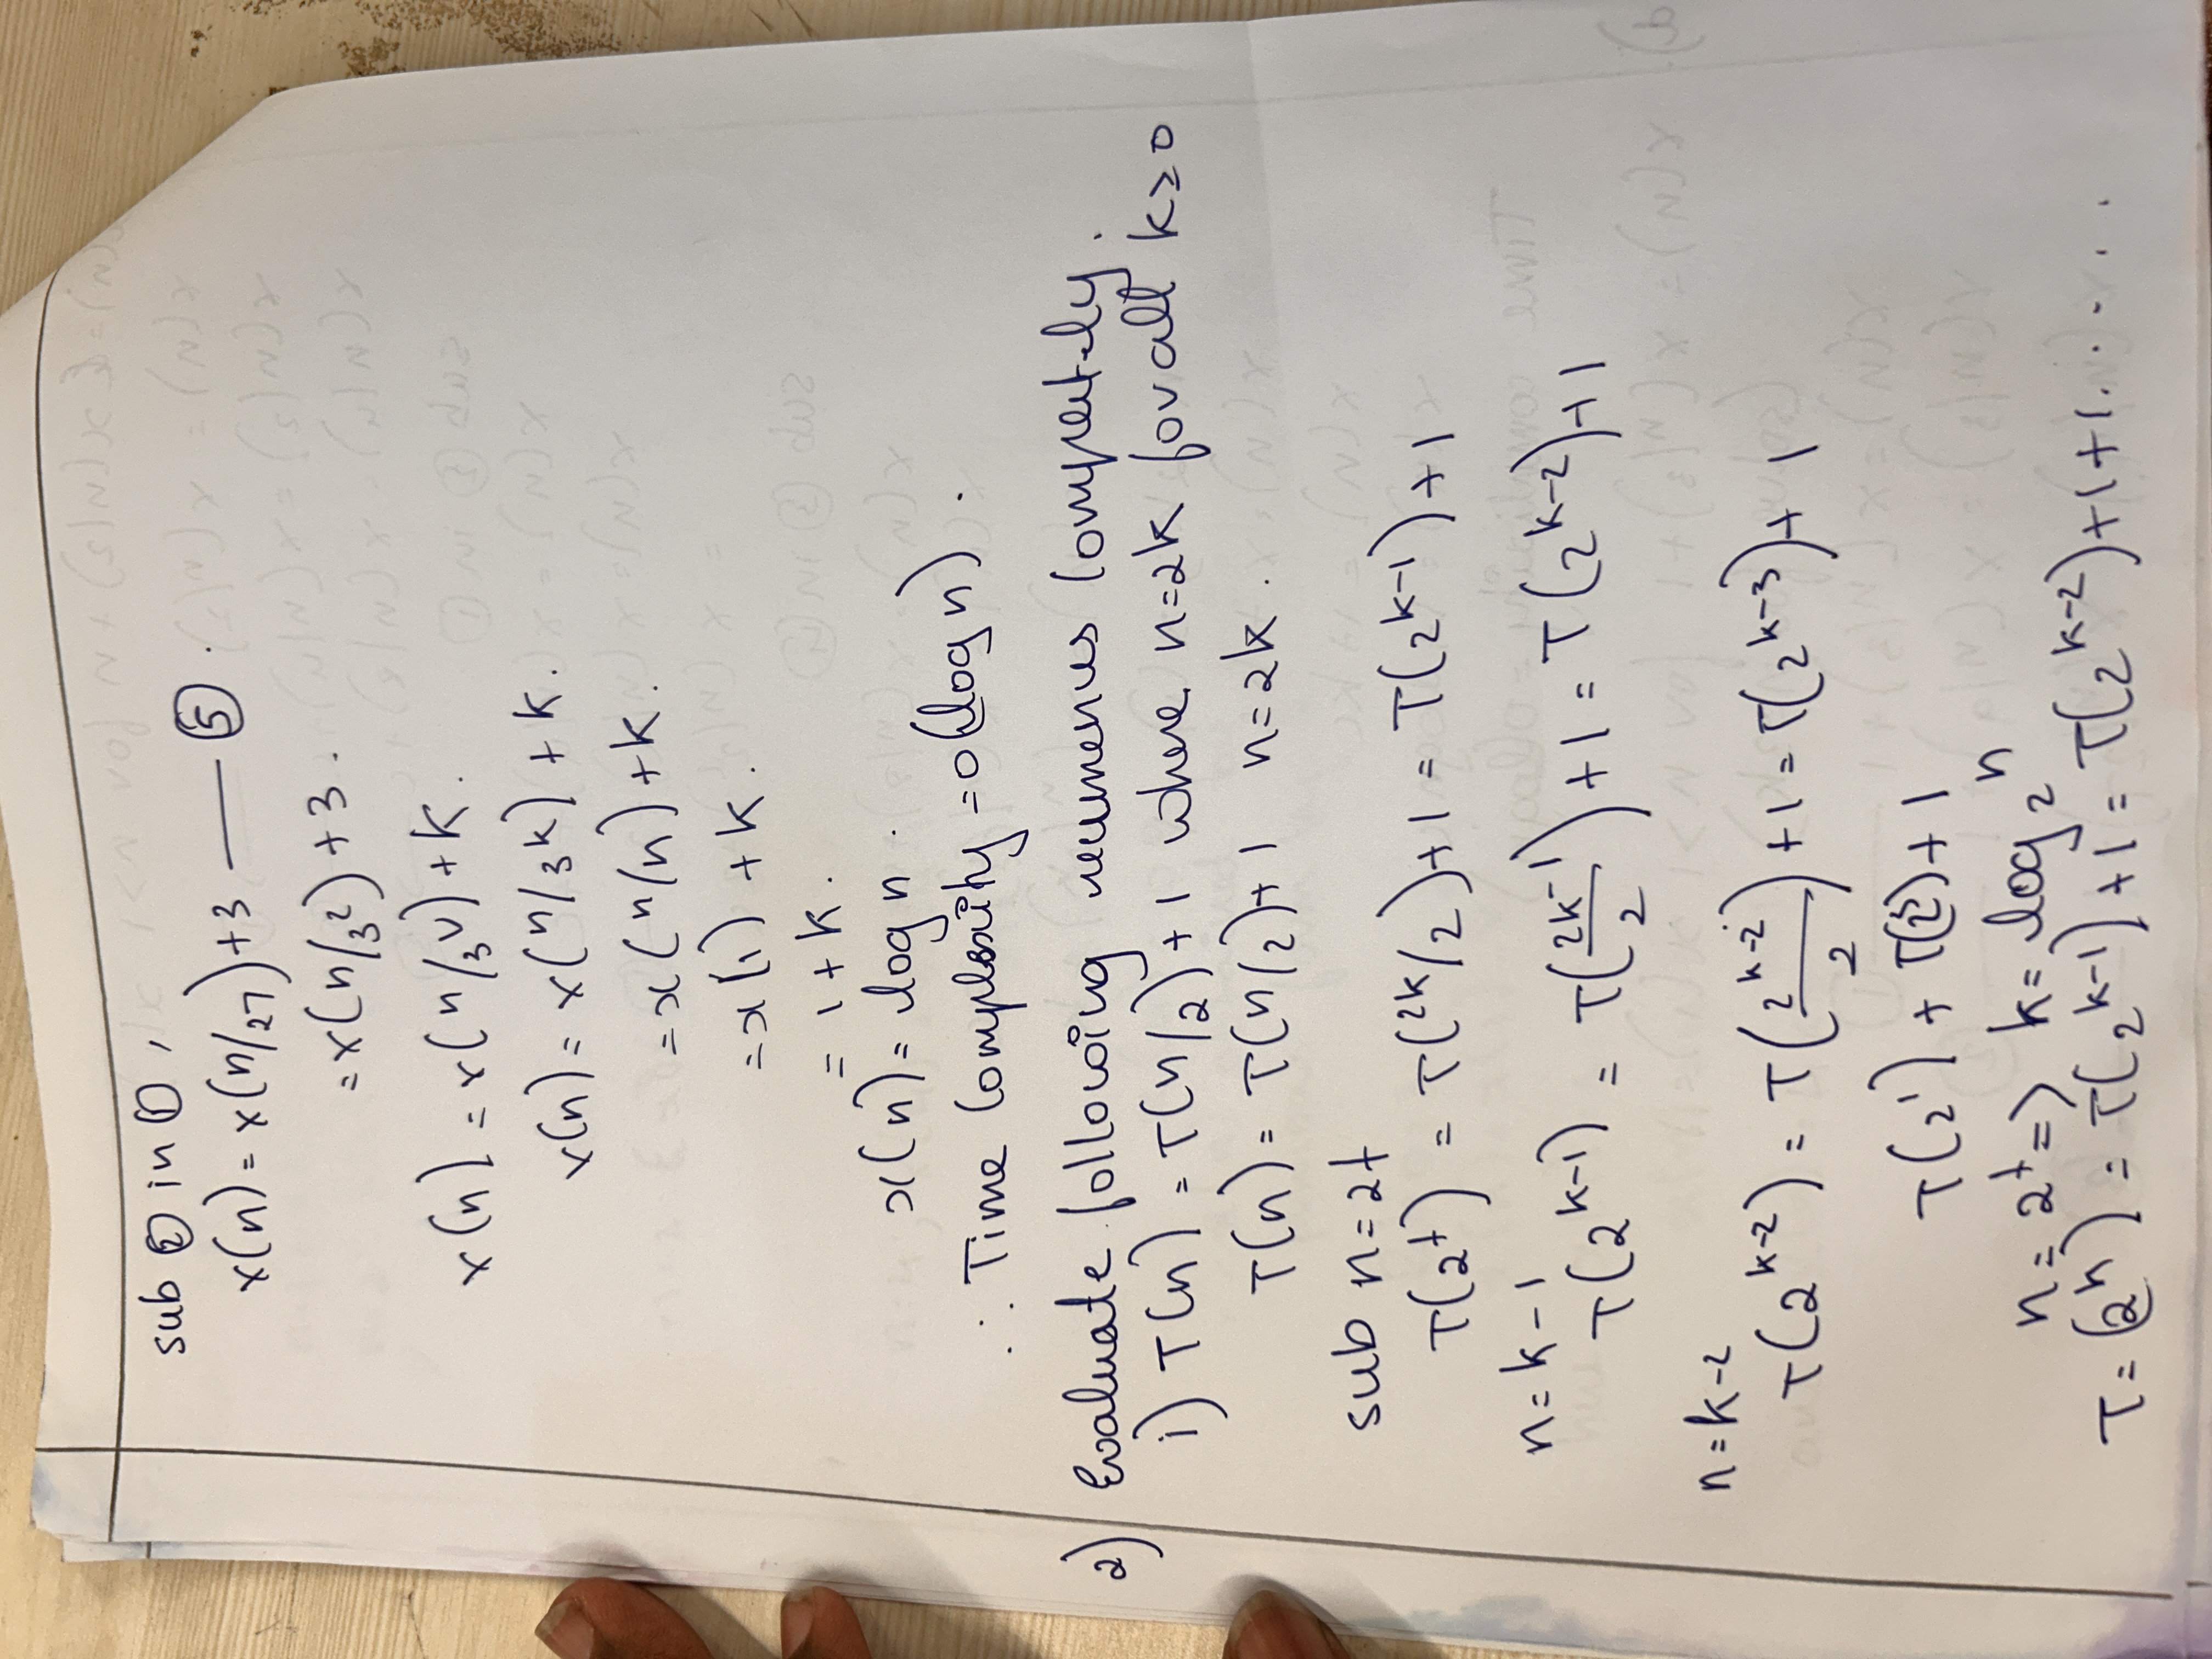 sub ② in ①,
x(n) = x(n/27) + 3 —— ⑤.
= x(n/3²) + 3.
x(n) = x(n/3^V) + k.
x(n) = x(n/3^k) + k.
= x(n/n) + k.
= x(1) + k.
= 1 + k.
x(n) = log n.
∴ Time complexity = o(log n).
2) Evaluate following completely.
i) T(n) = T(n/2) + 1 where n=2k for all k≥0
T(n) = T(n/2) + 1 n=2k.
sub n=2t
T(2^t) = T(2k/2) + 1 = T(2^k-1) + 1
n=k-1
T(2^k-1) = T(2k^-1/2) + 1 = T(2^k-2) + 1
n=k-2
T(2^k-2) = T(2^k-2/2) + 1 = T(2^k-3) + 1
T(2^1) + + 1
n = 2^t => k = log₂n
T = (2^n) = T(2^k-1) + 1 = T(2^k-2) + 1 + 1. . . . . .